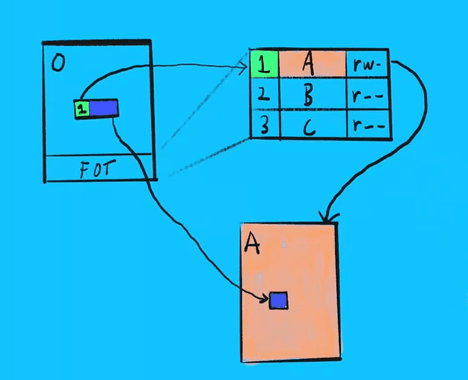 O
1
FOT
1 A rw-
2 B r--
3 C r--
A